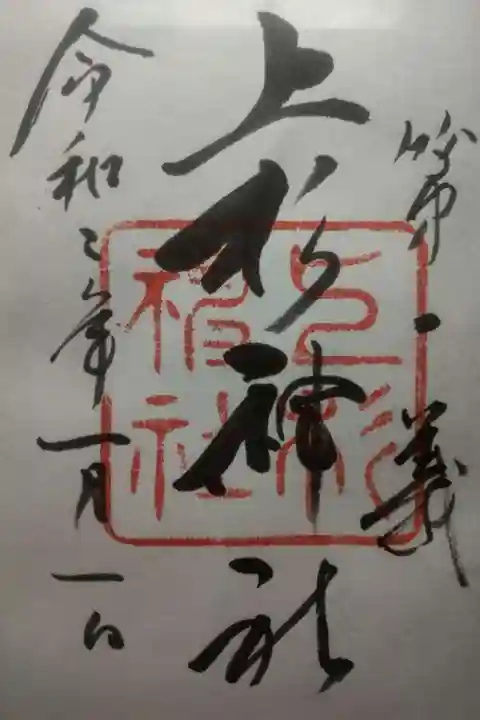 第一義
上杉神社
上杉神社
令和三年一月一日